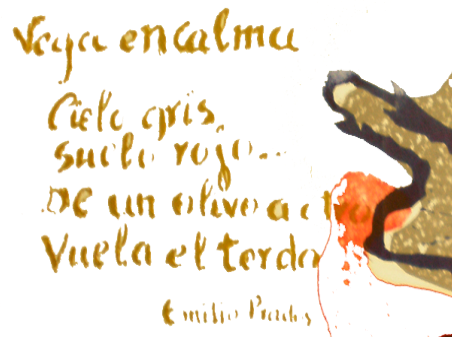 Vega en calma
Cielo gris,
suelo rojo...
De un olivo a otro
Vuela el tordo
Emilio Prados